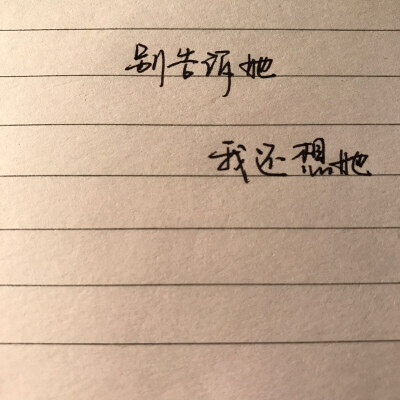 别告诉她
我还想她